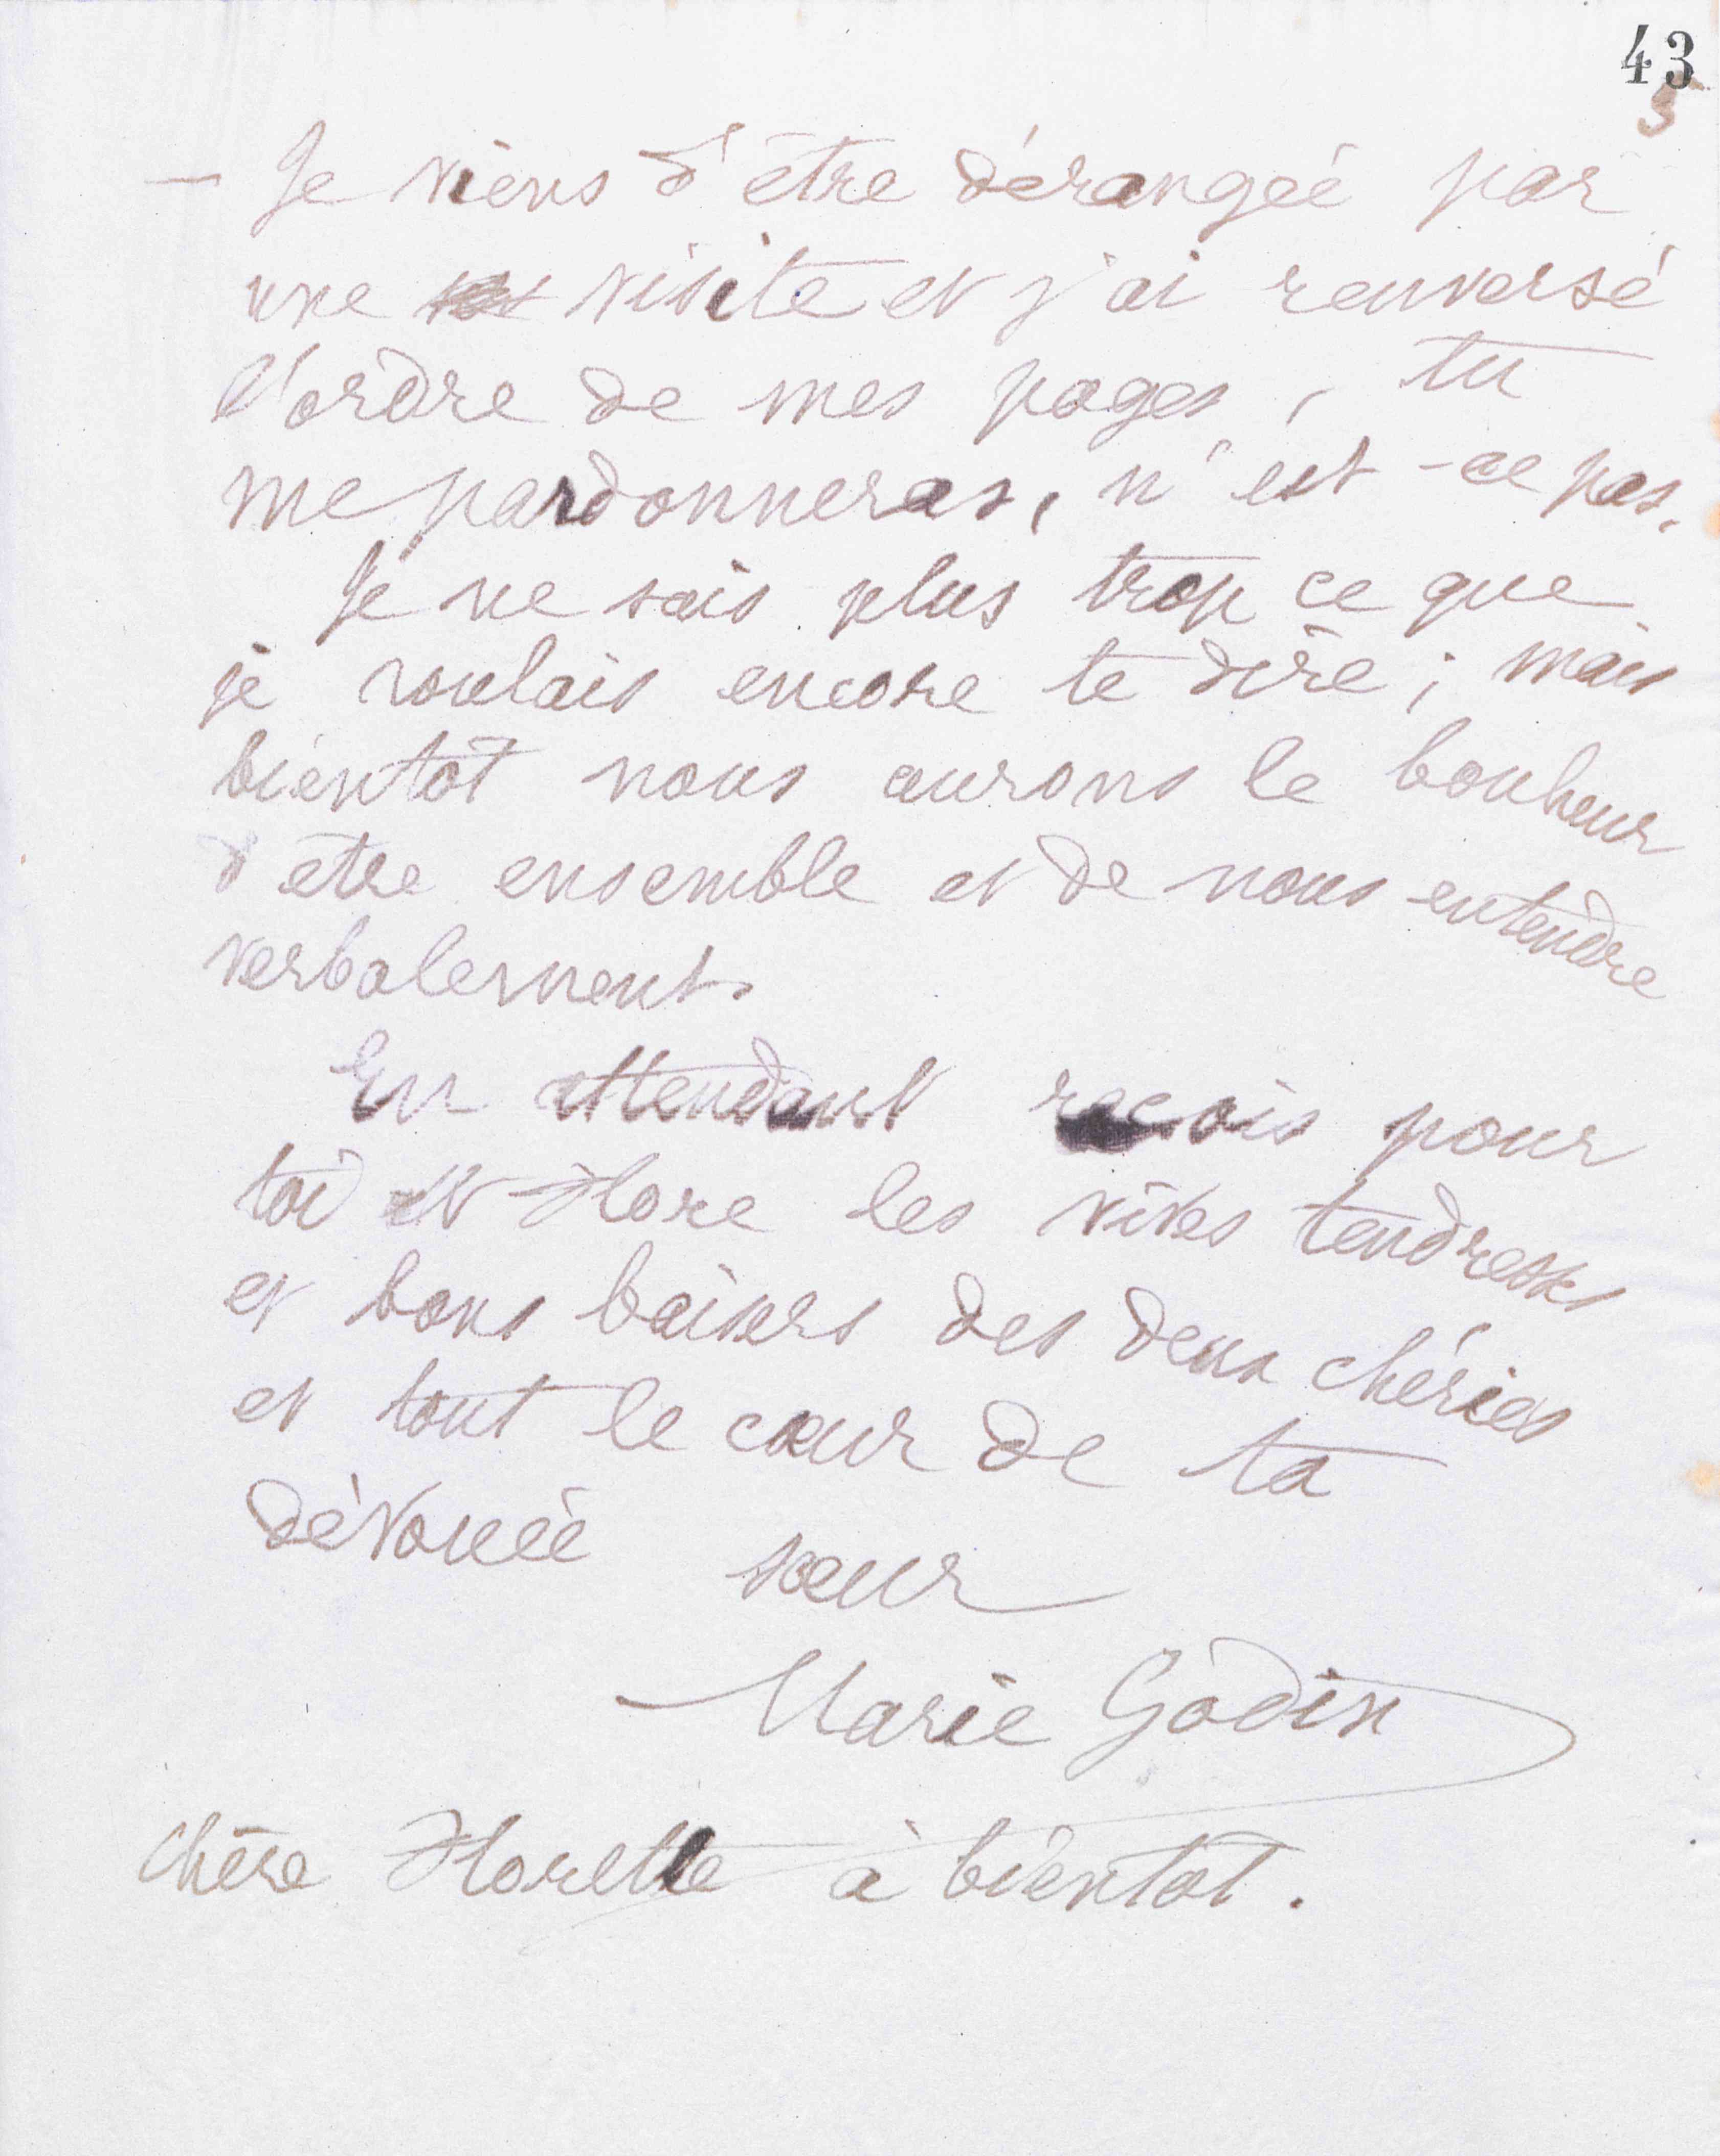 43
5
— Je viens d'être dérangée par
une visite et j'ai renversé
l'ordre de mes pages, tu
me pardonneras, n'est-ce pas.
Je ne sais plus trop ce que
je voulais encore te dire ; mais
bientôt nous aurons le bonheur
d'être ensemble et de nous entendre
verbalement.
En attendant reçois pour
toi et Flore les vives tendresses
et bons baisers des deux chéries
et tout le cœur de ta
dévouée sœur
Marie Godin
Chère Florette à bientôt.